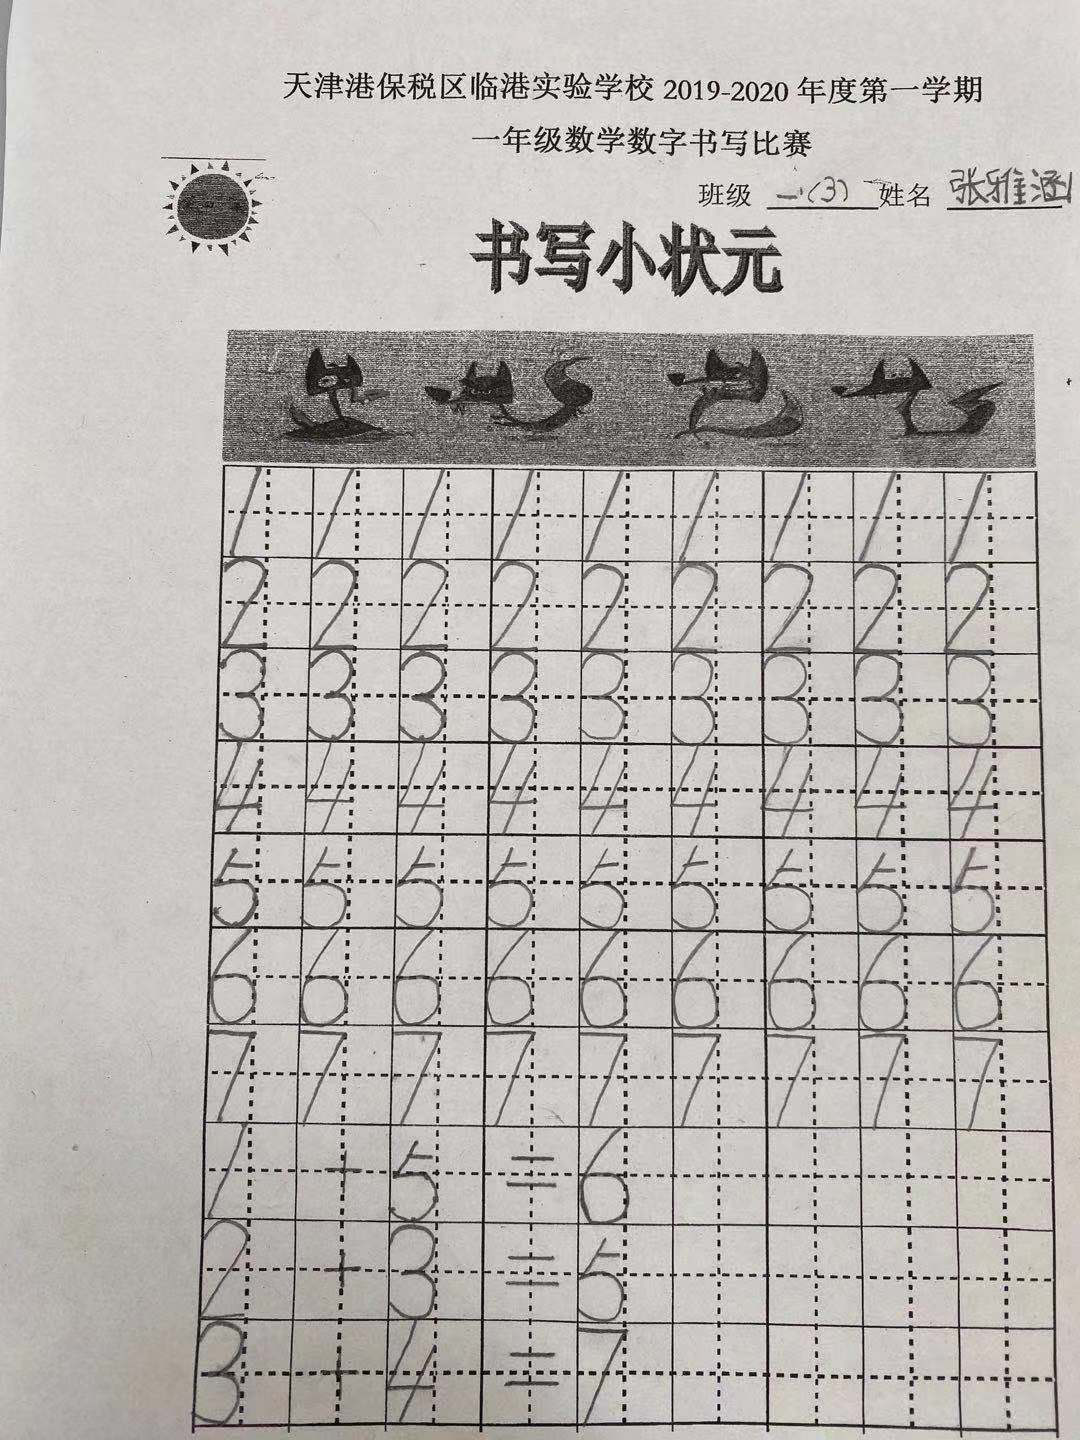 天津港保税区临港实验学校 2019-2020 年度第一学期
一年级数学数字书写比赛
班级 一(3) 姓名 张雅涵
书写小状元
1 1 1 1 1 1 1 1 1
2 2 2 2 2 2 2 2 2
3 3 3 3 3 3 3 3 3
4 4 4 4 4 4 4 4 4
5 5 5 5 5 5 5 5 5
6 6 6 6 6 6 6 6 6
7 7 7 7 7 7 7 7 7
1 + 5 = 6
2 + 3 = 5
3 + 4 = 7